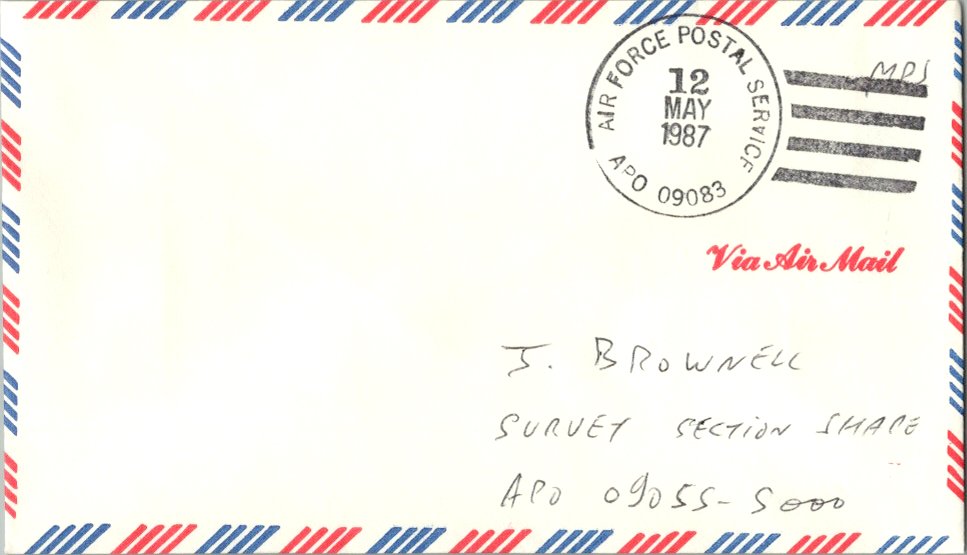 AIR FORCE POSTAL SERVICE
12
MAY
1987
APO 09083
MPS
Via Air Mail
J. BROWNELL
SURVEY SECTION SHAPE
APO 09055-5000